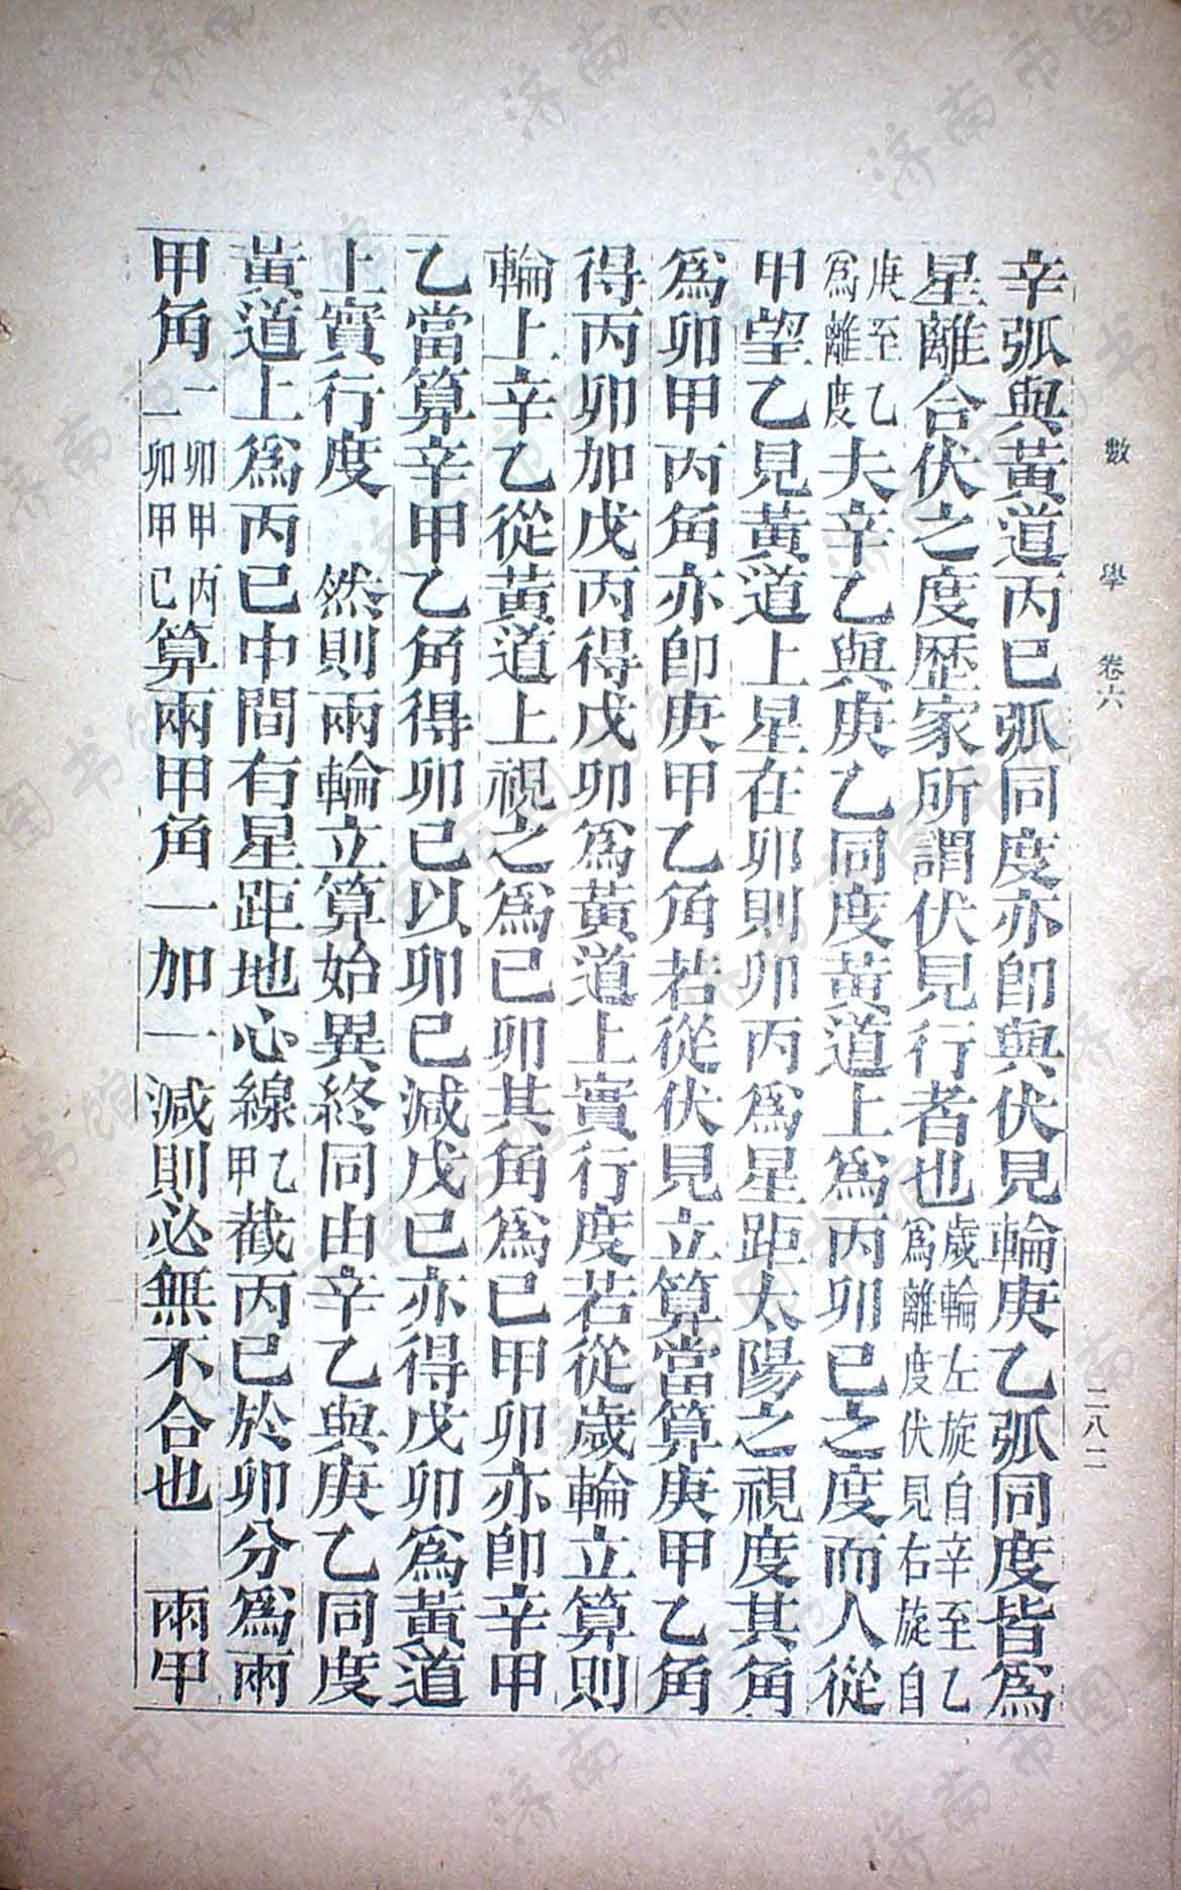 數學 卷六
二八二
辛弧與黃道丙己弧同度亦卽與伏見輪庚乙弧同度皆爲
星離合伏之度歷家所謂伏見行者也歲輪左旋自辛至乙爲離度伏見右旋自
庚至乙爲離度夫辛乙與庚乙同度黃道上爲丙卯己之度而人從
甲望乙見黃道上星在卯則卯丙爲星距太陽之視度其角
爲卯甲丙角亦卽庚甲乙角若從伏見立算當算庚甲乙角
得丙卯加戊丙得戊卯爲黃道上實行度若從歲輪立算則
輪上辛乙從黃道上視之爲己卯其角爲己甲卯亦卽辛甲
乙當算辛甲乙角得卯己以卯己減戊己亦得戊卯爲黃道
上實行度　然則兩輪立算始異終同由辛乙與庚乙同度
黃道上爲丙己中間有星距地心線乙甲截丙己於卯分爲兩
甲角一卯甲丙一卯甲己算兩甲角一加一減則必無不合也　兩甲
济南市图书馆